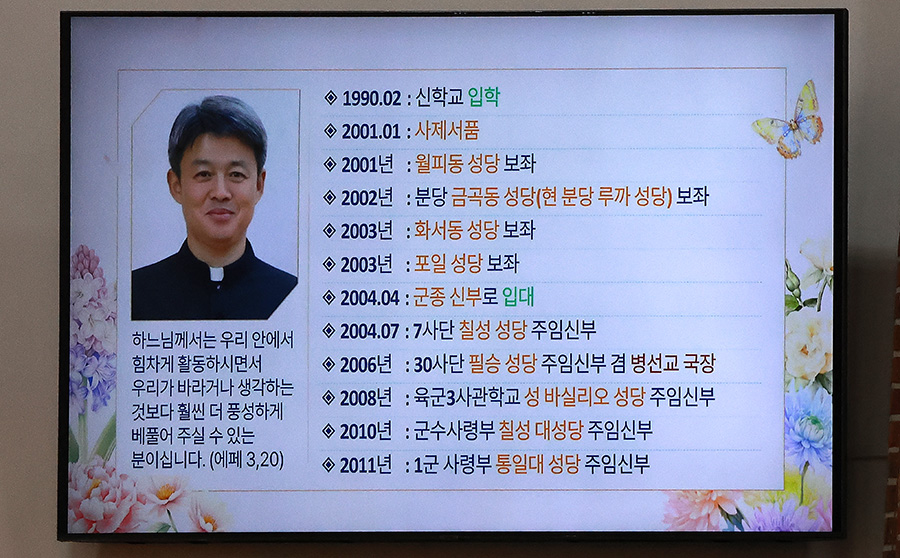 ◈ 1990.02 : 신학교 입학
◈ 2001.01 : 사제서품
◈ 2001년 : 월피동 성당 보좌
◈ 2002년 : 분당 금곡동 성당(현 분당 루까 성당) 보좌
◈ 2003년 : 화서동 성당 보좌
◈ 2003년 : 포일 성당 보좌
◈ 2004.04 : 군종 신부로 입대
◈ 2004.07 : 7사단 칠성 성당 주임신부
◈ 2006년 : 30사단 필승 성당 주임신부 겸 병선교 국장
◈ 2008년 : 육군3사관학교 성 바실리오 성당 주임신부
◈ 2010년 : 군수사령부 칠성 대성당 주임신부
◈ 2011년 : 1군 사령부 통일대 성당 주임신부
하느님께서는 우리 안에서
힘차게 활동하시면서
우리가 바라거나 생각하는
것보다 훨씬 더 풍성하게
베풀어 주실 수 있는
분이십니다. (에페 3,20)